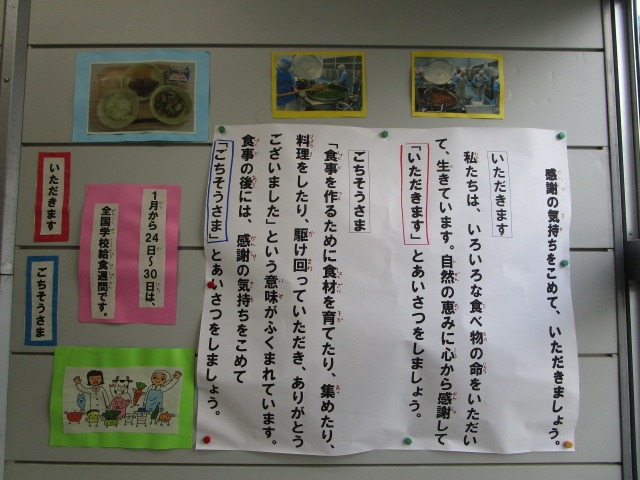 感謝の気持ちをこめて、いただきましょう。
いただきます
私たちは、いろいろな食べ物の命をいただい
て、生きています。自然の恵みに心から感謝して
「いただきます」とあいさつをしましょう。
ごちそうさま
「食事を作るために食材を育てたり、集めたり、
料理をしたり、駆け回っていただき、ありがとう
ございました」という意味がふくまれています。
食事の後には、感謝の気持ちをこめて
「ごちそうさま」とあいさつをしましょう。
いただきます
ごちそうさま
1月から24日～30日は、
全国学校給食週間です。